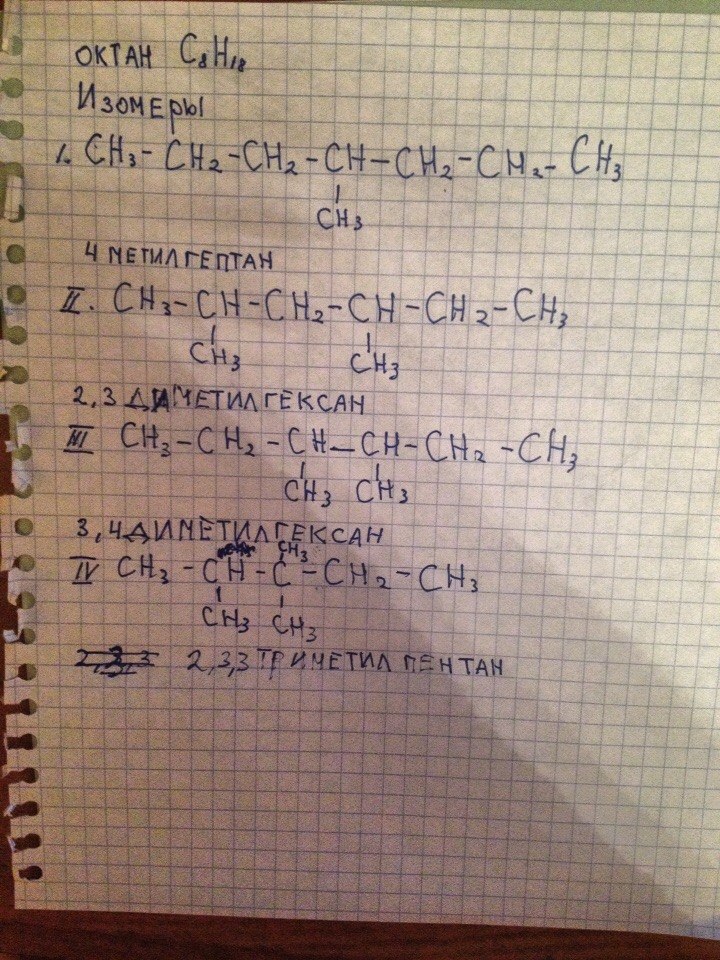 ОКТАН C8H18
Изомеры
1. CH3-CH2-CH2-CH-CH2-CH2-CH3
CH3
4 МЕТИЛГЕПТАН
II. CH3-CH-CH2-CH-CH2-CH3
CH3 CH3
2,3 ДИМЕТИЛГЕКСАН
III CH3-CH2-CH-CH-CH2-CH3
CH3 CH3
3,4 ДИМЕТИЛГЕКСАН
CH3
IV CH3-CH-C-CH2-CH3
CH3 CH3
2,3,3 2,3,3 ТРИМЕТИЛ ПЕНТАН